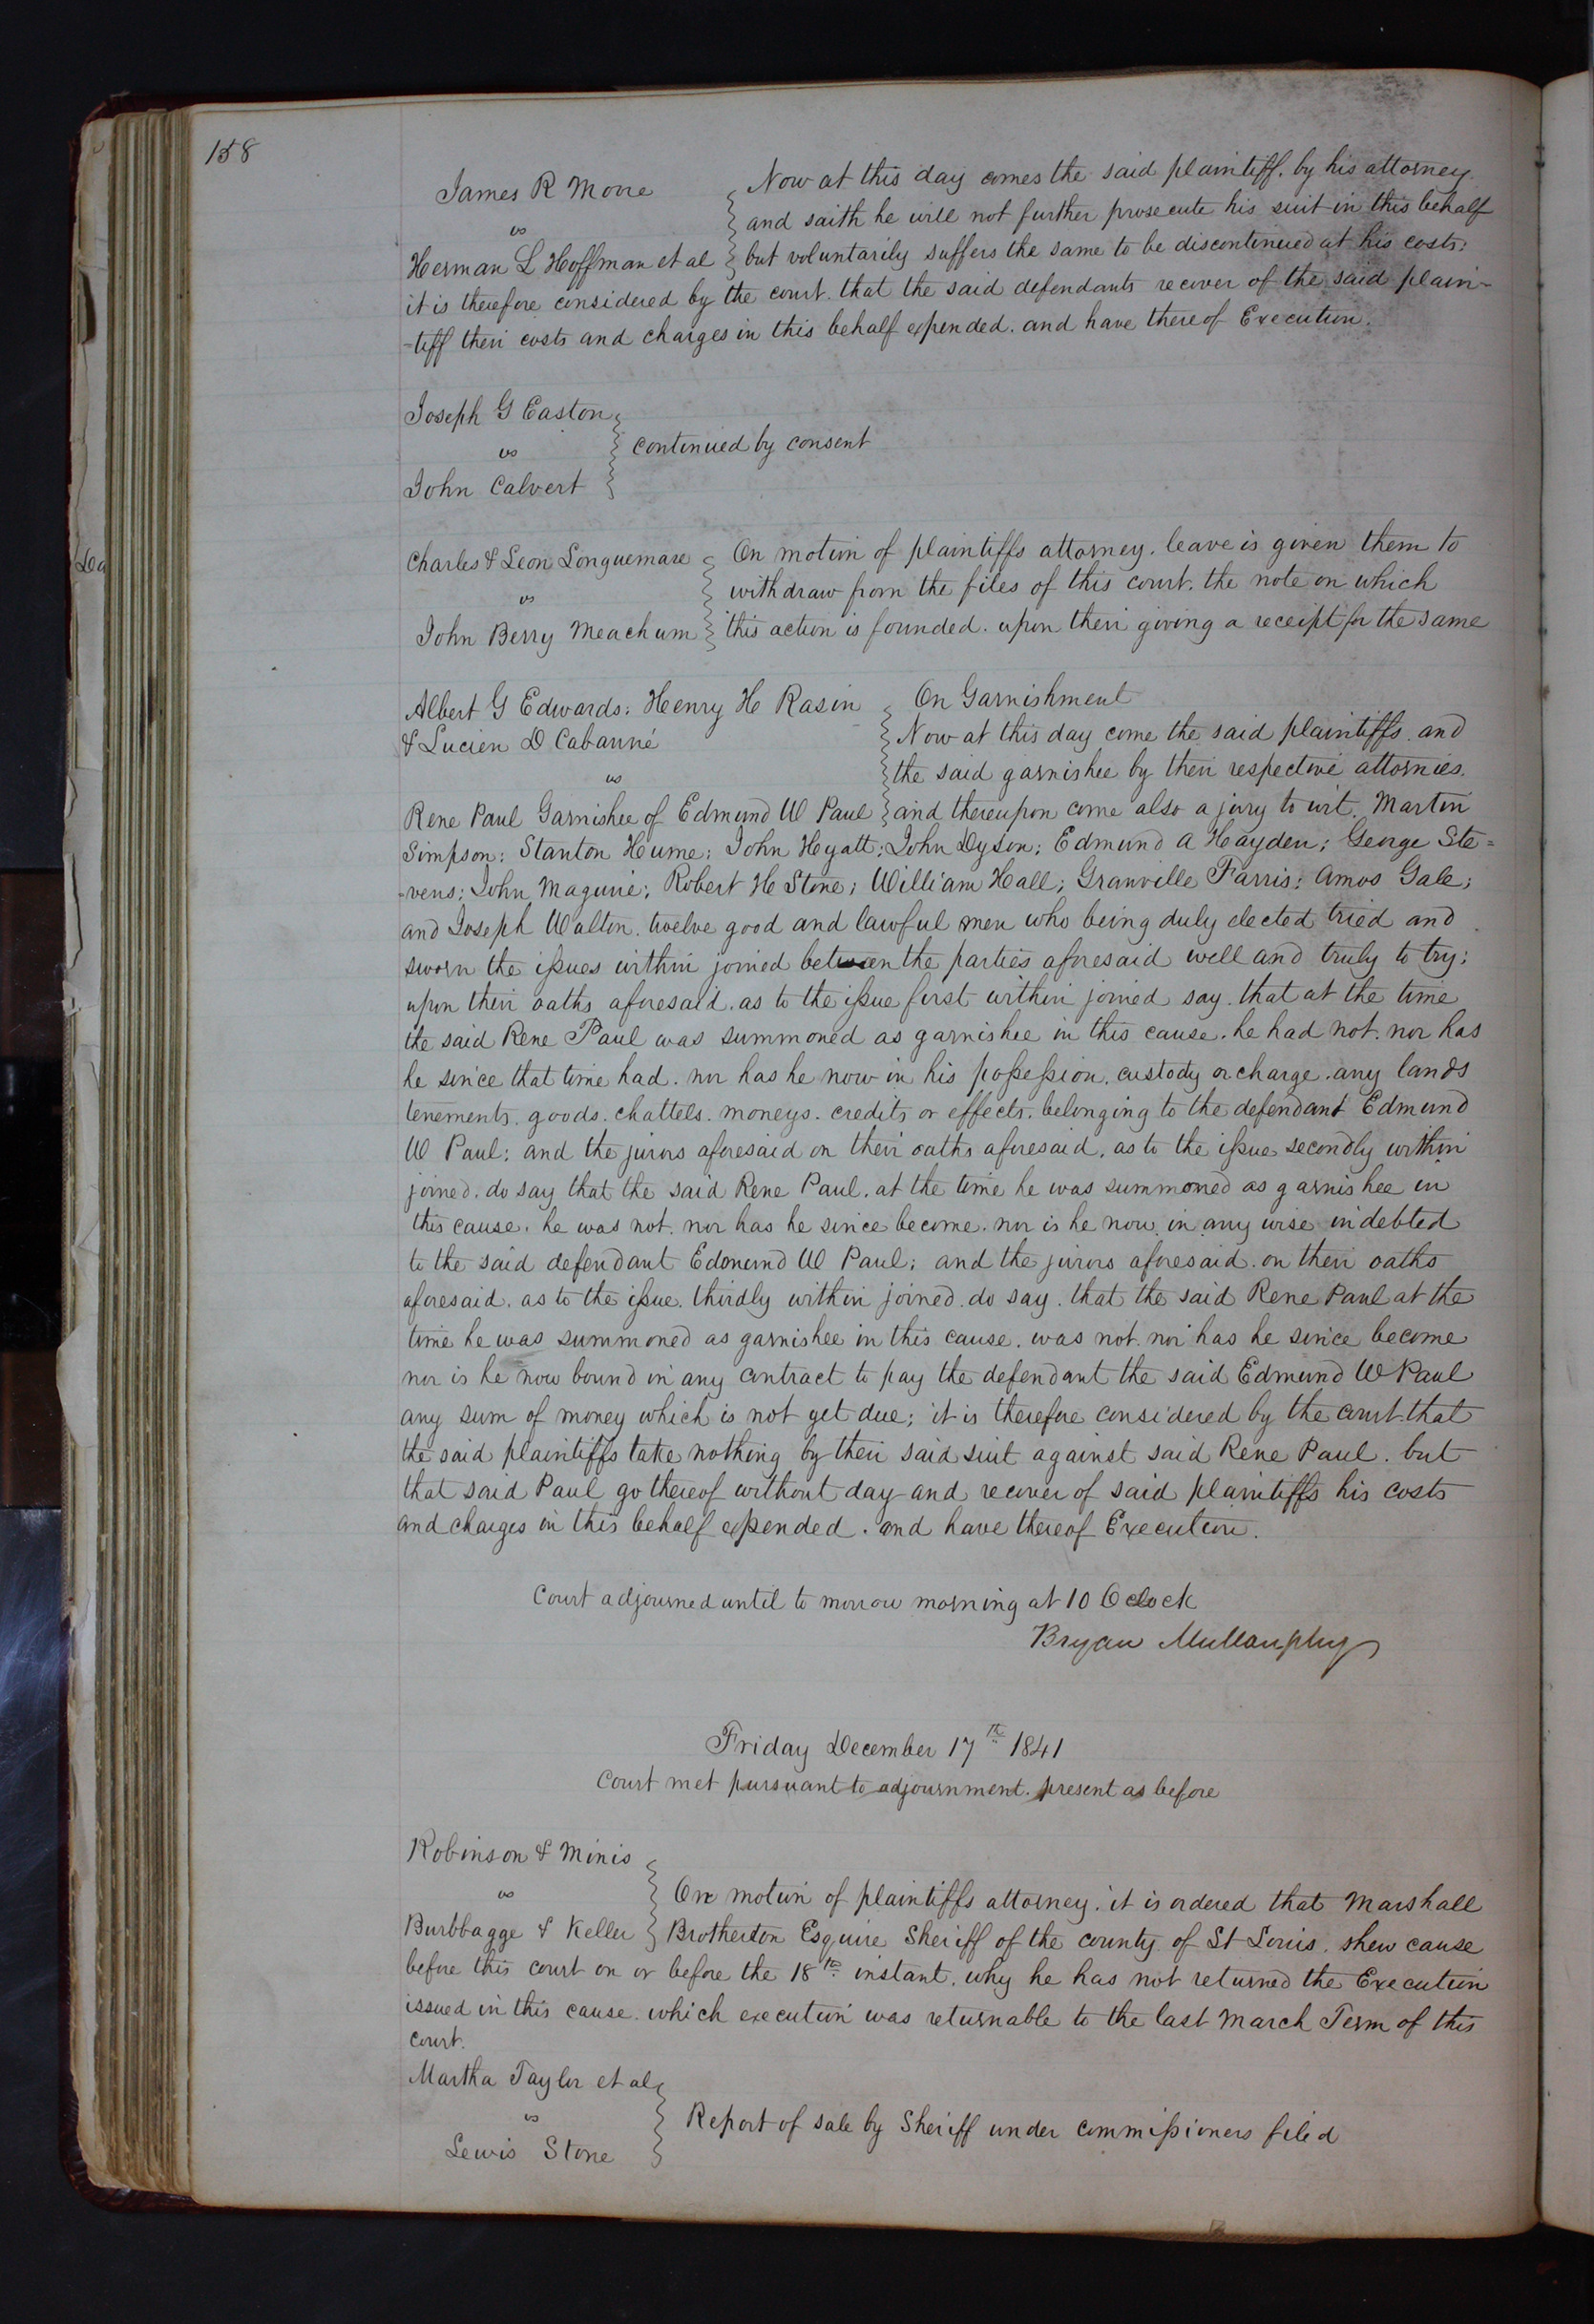 158
James R Moore
vs
Herman L Hoffman et al
Now at this day comes the said plaintiff. by his attorney
and saith he will not further prosecute his suit in this behalf
but voluntarily suffers the same to be discontinued at his costs:
it is therefore considered by the court. that the said defendants recover of the said plain-
-tiff their costs and charges in this behalf expended. and have thereof Execution.
Joseph G Easton
vs
John Calvert
continued by consent
Charles & Leon Longuemare
vs
John Berry Meachum
On motion of plaintiffs attorney. leave is given them to
withdraw from the files of this court. the note on which
this action is founded. upon their giving a receipt for the same
Albert G Edwards: Henry H Rasin
& Lucien D Cabanné
vs
Rene Paul Garnishee of Edmund W Paul
On Garnishment
Now at this day come the said plaintiffs and
the said garnishee by their respective attornies.
and thereupon come also a jury to wit. Martin
Simpson: Stanton Hume: John Hyatt: John Dyson: Edmund A Hayden; George Ste=
-vens; John Maguire; Robert H Stone; William Hall; Granville Farris: Amos Gale;
and Joseph Walton. twelve good and lawful men who being duly elected tried and
sworn the issues within joined between the parties aforesaid well and truly to try;
upon their oaths aforesaid. as to the issue first within joined say. that at the time
the said Rene Paul was summoned as garnishee in this cause. he had not. nor has
he since that time had. nor has he now in his possession. custody or charge. any lands
tenements. goods. chattels. moneys. credits or effects. belonging to the defendant Edmund
W Paul; and the jurors aforesaid on their oaths aforesaid. as to the issue secondly within
joined. do say that the said Rene Paul. at the time he was summoned as garnishee in
this cause. he was not. nor has he since become. nor is he now in any wise indebted
to the said defendant Edmund W Paul; and the jurors aforesaid. on their oaths
aforesaid. as to the issue. thirdly within joined. do say. that the said Rene Paul at the
time he was summoned as garnishee in this cause. was not. nor has he since become
nor is he now bound in any contract to pay the defendant the said Edmund W Paul
any sum of money which is not yet due; it is therefore considered by the court. that
the said plaintiffs take nothing by their said suit against said Rene Paul. but
that said Paul go thereof without day and recover of said plaintiffs his costs
and charges in this behalf expended. and have thereof Execution.
Court adjourned until to morrow morning at 10 Oclock
Bryan Mullanphy
Friday December 17th 1841
Court met pursuant to adjournment. present as before
Robinson & Minis
vs
Burbbagge & Keller
On motion of plaintiffs attorney. it is ordered that Marshall
Brotherton Esquire Sheriff of the county of St Louis. shew cause
before this court on or before the 18th instant. why he has not returned the Execution
issued in this cause. which execution was returnable to the last March Term of this
court.
Martha Taylor et al
vs
Lewis Stone
Report of sale by Sheriff under commissioners filed